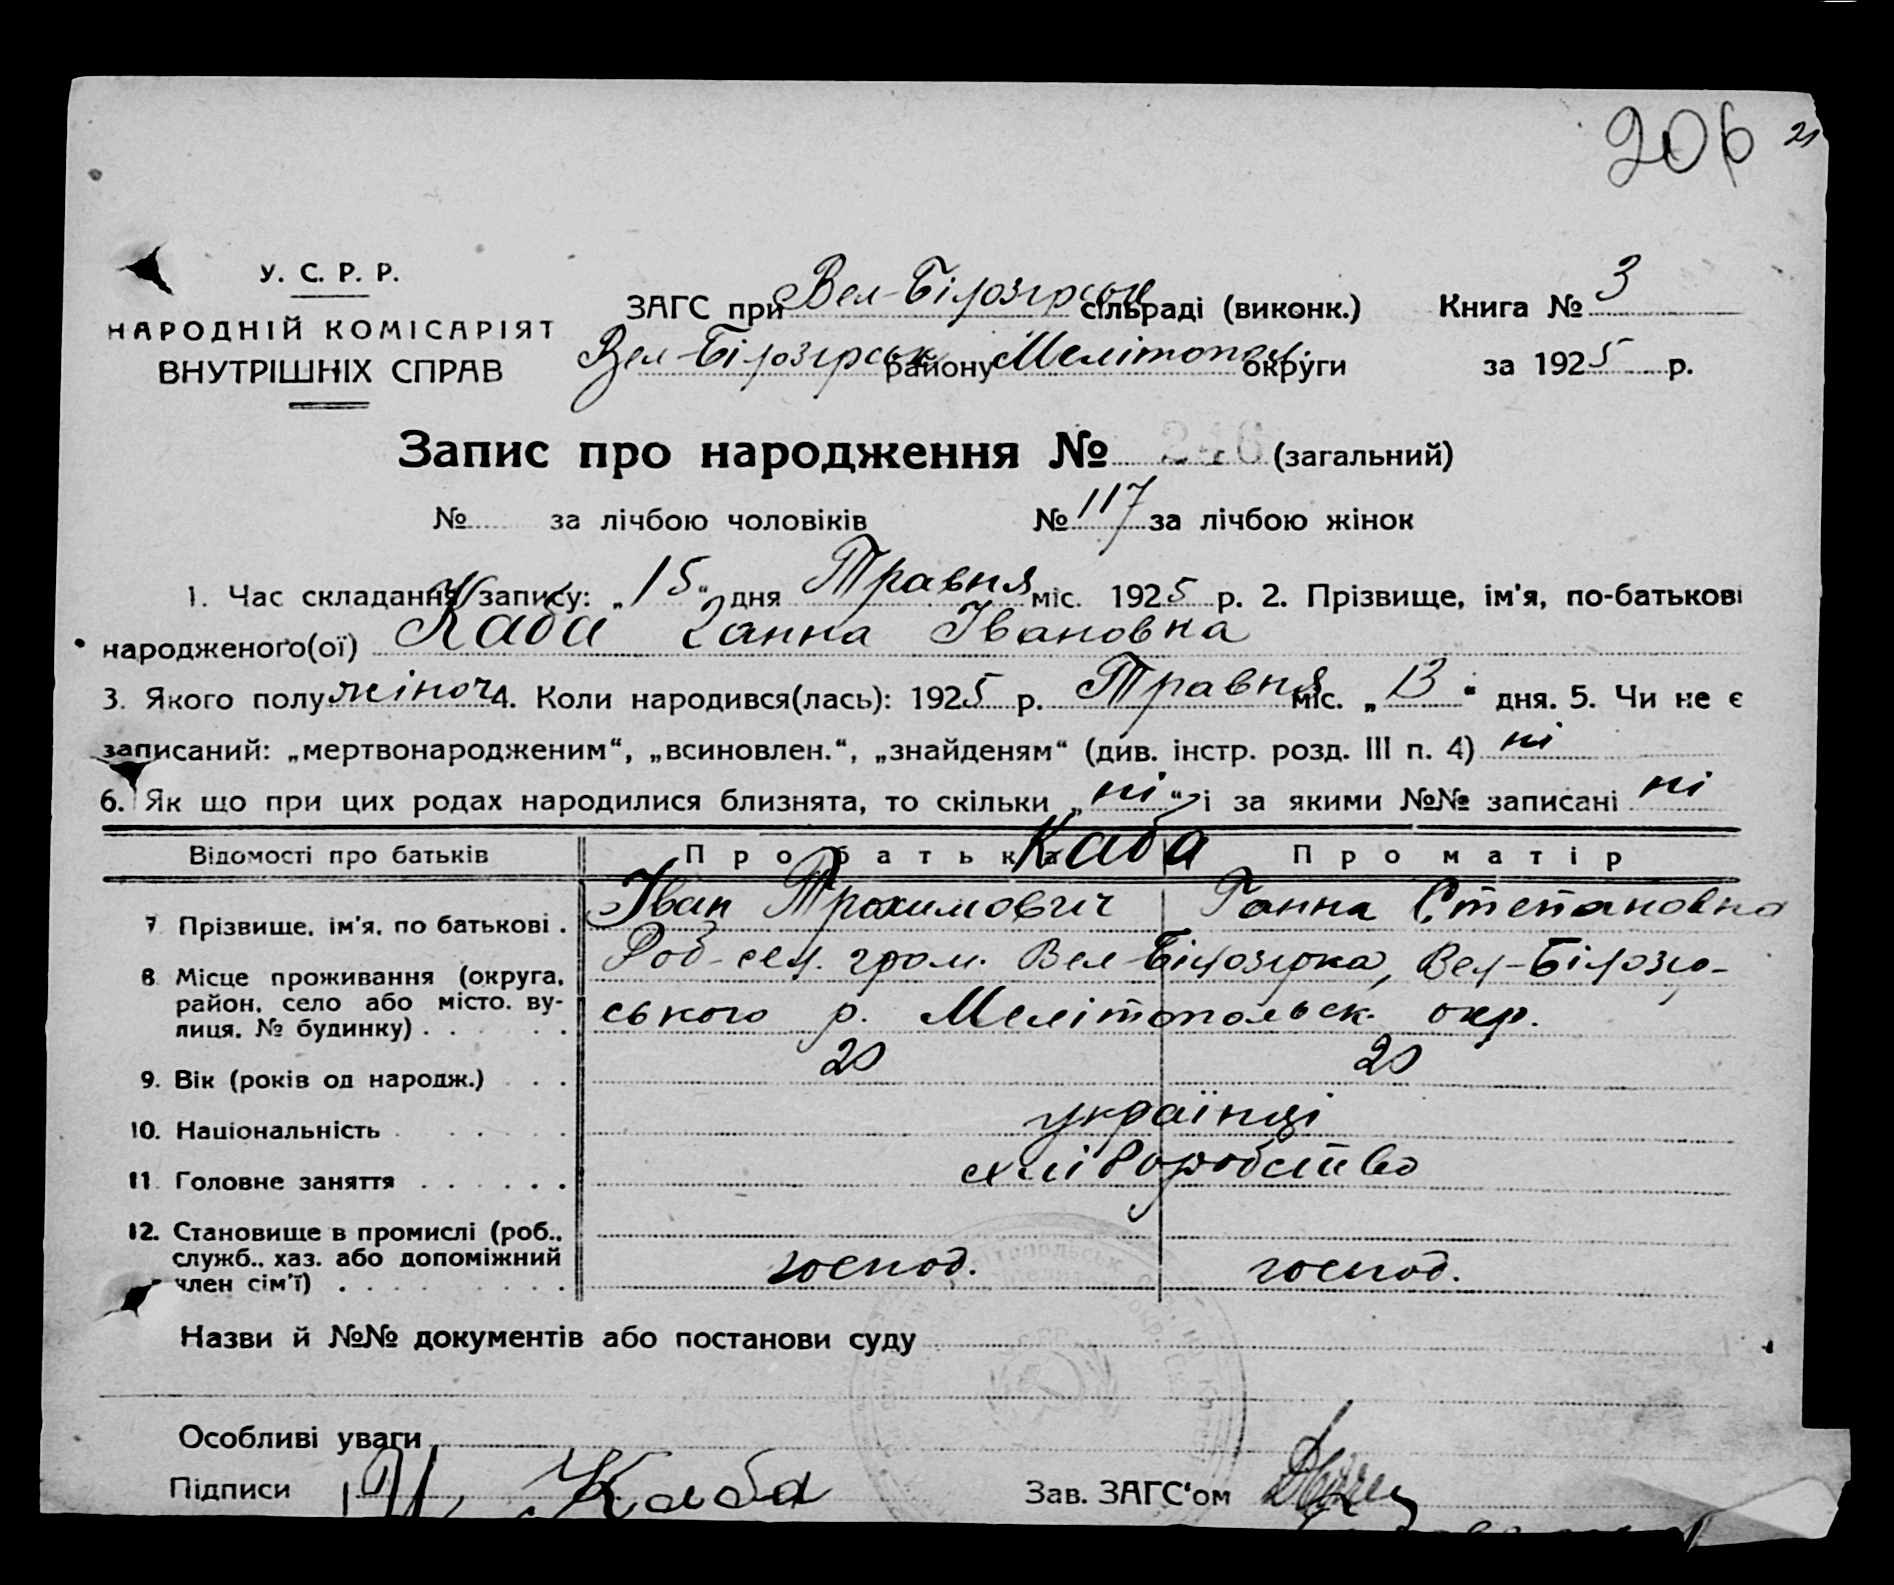 206 21
У. С. Р. Р.
НАРОДНІЙ КОМІСАРІЯТ
ВНУТРІШНІХ СПРАВ
ЗАГС при Вел-Білозірськ сільраді (виконк.) Книга № 3
Вел-Білозірськ району Мелітопол. округи за 1925 р.
Запис про народження № 246 (загальний)
№ за лічбою чоловіків № 117 за лічбою жінок
1. Час складання запису: „15“ дня Травня міс. 1925 р. 2. Прізвище, ім'я, по-батькові
народженого(ої) Каба Ганна Івановна
3. Якого полу жіноч 4. Коли народився(лась): 1925 р. Травня міс. „13“ дня. 5. Чи не є
записаний: „мертвонародженим“, „всиновлен.“, „знайденям“ (див. інстр. розд. III п. 4) ні
6. Як що при цих родах народилися близнята, то скільки „ні“ і за якими №№ записані ні
Відомості про батьків Про батька Про матір
Каба
7 Прізвище, ім'я, по батькові . Іван Трохимович Ганна Степановна
8 Місце проживання (округа, район, село або місто, ву-лиця, № будинку) . . . . . Роб-сел. гром. Вел-Білозірка, Вел-Білозір-
ського р. Мелітопольськ. окр.
9. Вік (років од народж.) . . . 20 20
10. Національність . . . . . українці
11. Головне заняття . . . . . . хліборобство
12. Становище в промислі (роб., служб., хаз. або допоміжний член сім'ї) . . . . . . господ. господ.
Назви й №№ документів або постанови суду
Особливі уваги
Підписи И. Каба Зав. ЗАГС'ом